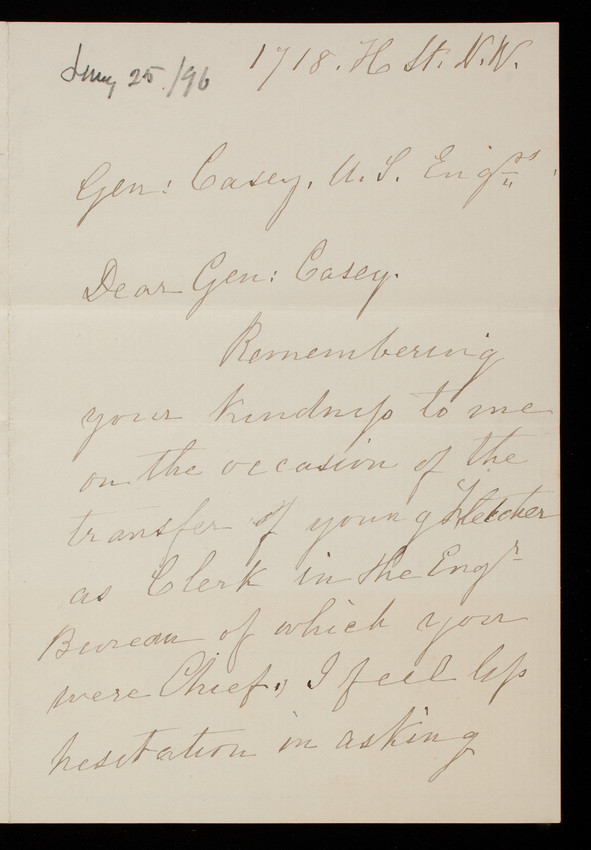 Jany 25/96
1718. H St. N.W.
Gen: Casey, U.S. Engrs.
Dear Gen: Casey.
Remembering
your kindness to me
on the occasion of the
transfer of young Fletcher
as Clerk in the Engr
Bureau of which you
were Chief, I feel less
hesitation in asking